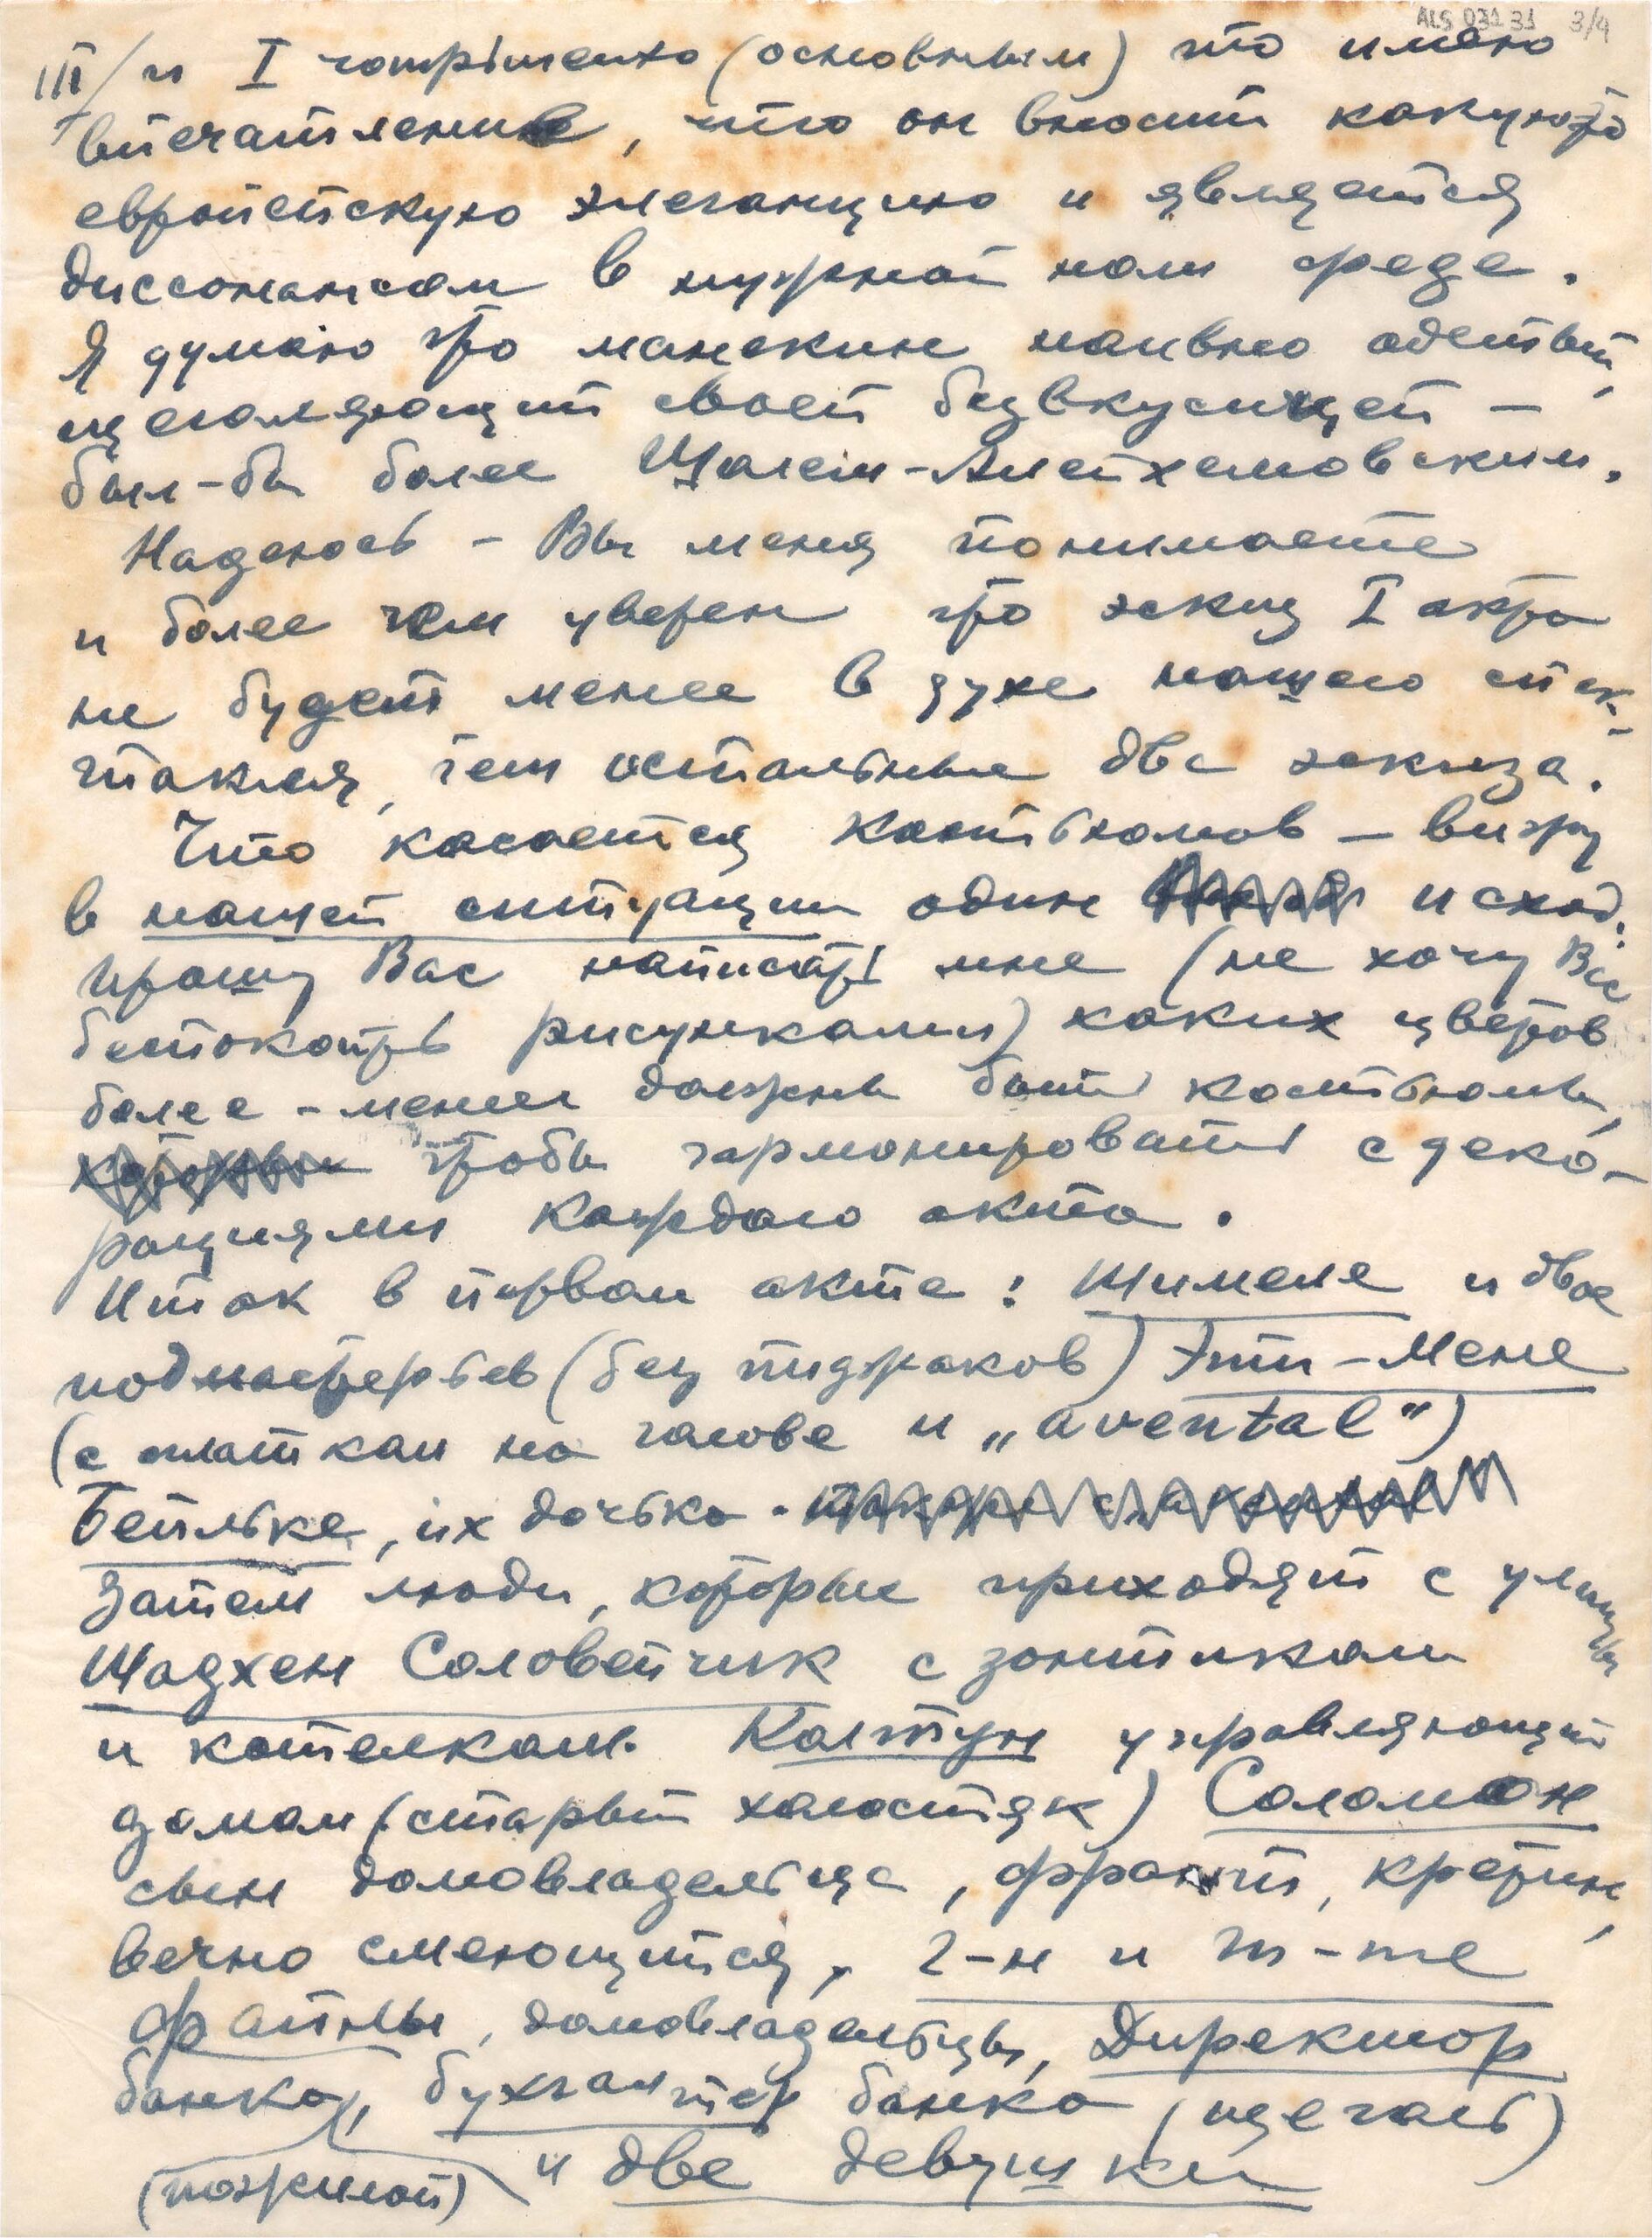 ALS 03131 3/4
III/ и I (основным) что имею
впечатление, что он вносит какуюто
европейскую элеганцию и является
диссонансом в нужной нам среде.
Я думаю что манекин наивно одетый,
щеголяющий своей безвкусицей —
был-бы более Шолем-Алейхемовским.
Надеюсь – Вы меня понимаете
и более чем уверен что эскиз I акта
не будет менее в духе нашего спек-
такля, чем остальные два эскиза.
Что касается костьюмов – вижу
в нашей ситуации один исход:
прошу Вас написать мне (не хочу Вас
беспокоить рисунками) каких цветов
более-менее должны быть костьюмы,
чтобы гармонировать с деко-
рациями каждого акта.
Итак в первом акте: Шимеле и двое
подмастерьев (без пиджаков) Эти-Мене
(с платком на голове и „avental“)
Бейльке, их дочька.
Затем люди, которые приходят с улицы
Шадхен Соловейчик с зонтиком
и котелком. Колтун управляющий
домом (старый холостяк) Соломон
сын домовладельца, франт, кретин,
вечно смеющийся, г-н и m-me
Файны, домовладельцы, Директор
банка, бухгалтер банка (щеголь)
(пожилой) и две девушки